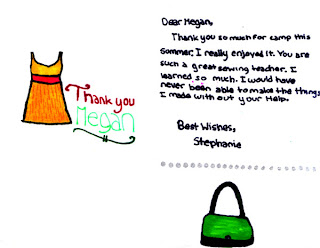 Thank you
Megan
Dear Megan,
Thank you so much for camp this
Sommer. I really enjoyed it. You are
such a great sewing teacher. I
learned so much. I would have
never been able to make the things
I made with out your Help.
Best Wishes,
Stephanie